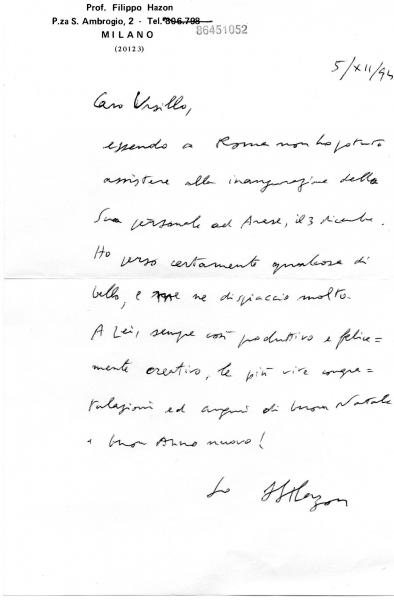 Prof. Filippo Hazon
P.za S. Ambrogio, 2 - Tel. 896.798 86451052
MILANO
(20123)
5/XII/94
Caro Ursillo,
essendo a Roma non ho potuto
assistere alla inaugurazione della
Sua personale ad Arese, il 3 dicembre.
Ho perso certamente qualcosa di
bello, e me ne dispiaccio molto.
A Lei, sempre così produttivo e felice=
mente creativo, le più vive congra=
tulazioni ed auguri di buon Natale
e buon Anno nuovo!
FHazon